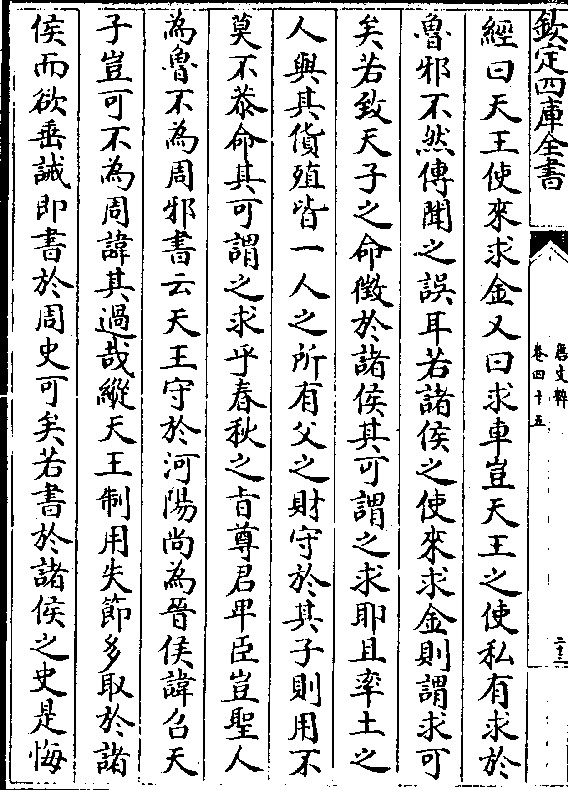 欽定四庫全書
舊文粹
卷四十五
二十三
經曰天王使來求金又曰求車豈天王之使私有求於
魯邪不然傳聞之誤耳若諸侯之使來求金則謂求可
矣若致天子之命徵於諸侯其可謂之求耶且率土之
人與其貨殖皆一人之所有父之財守於其子則用不
莫不恭命其可謂之求乎春秋之旨尊君卑臣豈聖人
為魯不為周邪書云天王守於河陽尚為晉侯諱召天
子豈可不為周諱其過哉縱天王制用失節多取於諸
侯而欲垂誡即書於周史可矣若書於諸侯之史是悔